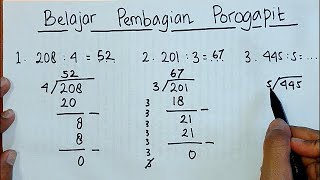 Belajar Pembagian Porogapit
1. 208 : 4 = 52 2. 201 : 3 = 67 3. 445 : 5 = ...
52 67
4 208 3 201 5 445
20 3 18
8 - 3 21 -
8 3 21
0 - 3 0 -
3
3